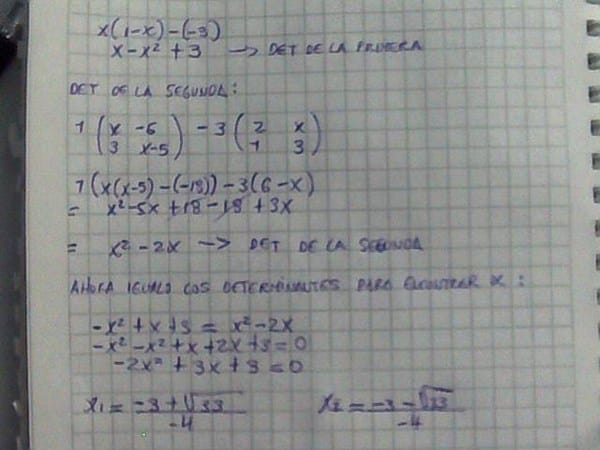 x(1-x)-(-3)
x-x² + 3 → DET DE LA PRIMERA
DET DE LA SEGUNDA:
1 (x -6 / 3 x-5) - 3 (2 x / 1 3)
1(x(x-5)-(-18))-3(6-x)
= x²-5x+18-18+3x
= x²-2x → DET DE LA SEGUNDA
AHORA IGUALO LOS DETERMINANTES PARA ENCONTRAR X:
-x²+x+3 = x²-2x
-x²-x²+x+2x+3=0
-2x²+3x+3=0
x₁ = -3+√33 / -4 x₂ = -3-√33 / -4